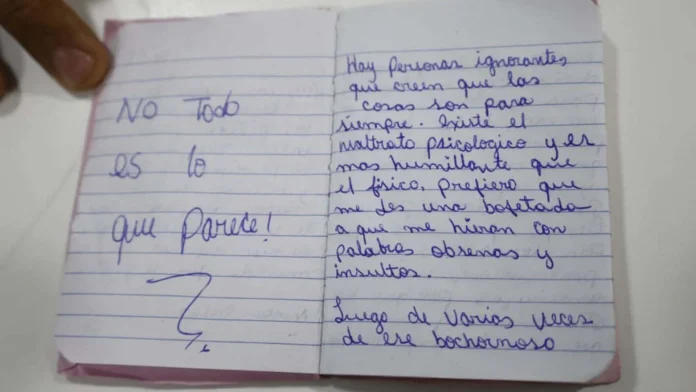 NO TODO
es lo
que Parece!
Hay personas ignorantes
que creen que las
cosas son para
siempre. Existe el
maltrato psicologico y es
mas humillante que
el fisico, prefiero que
me des una bofetada
a que me hieran con
palabras obsenas y
insultos.
Luego de varias veces
de ese bochornoso